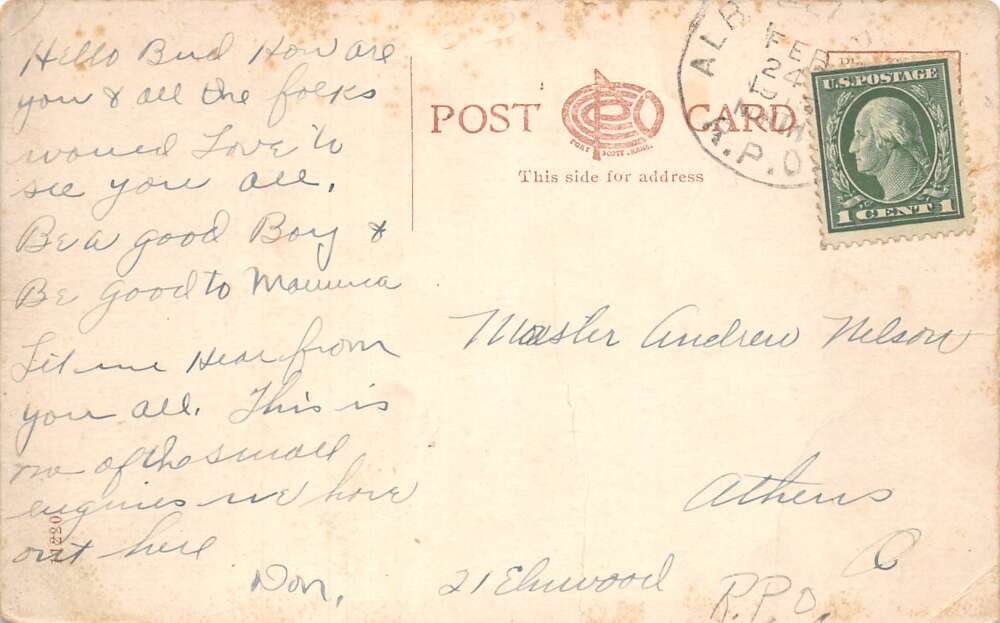 Hello Bud How are
you & all the folks
would Love to
see you all.
Be a good Boy &
Be good to Mamma
Let me Hear from
you all. This is
one of the small
engines we have
out here
Don.
POST CARD
FORT SCOTT, KANS.
This side for address
ALB
FEB
24
R.P.O.
U.S. POSTAGE
1 CENT 1
Master Andrew Nelson
Athens
O
21 Elmwood
R.P.O.
1220